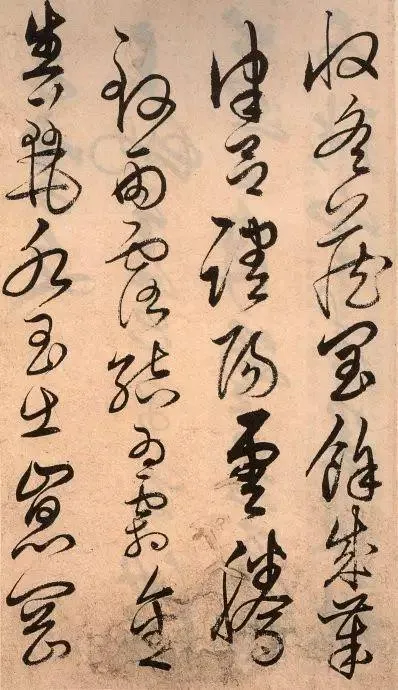 收冬藏閏餘成歲
律呂調陽雲騰
致雨露結為霜金
生麗水玉出崑岡